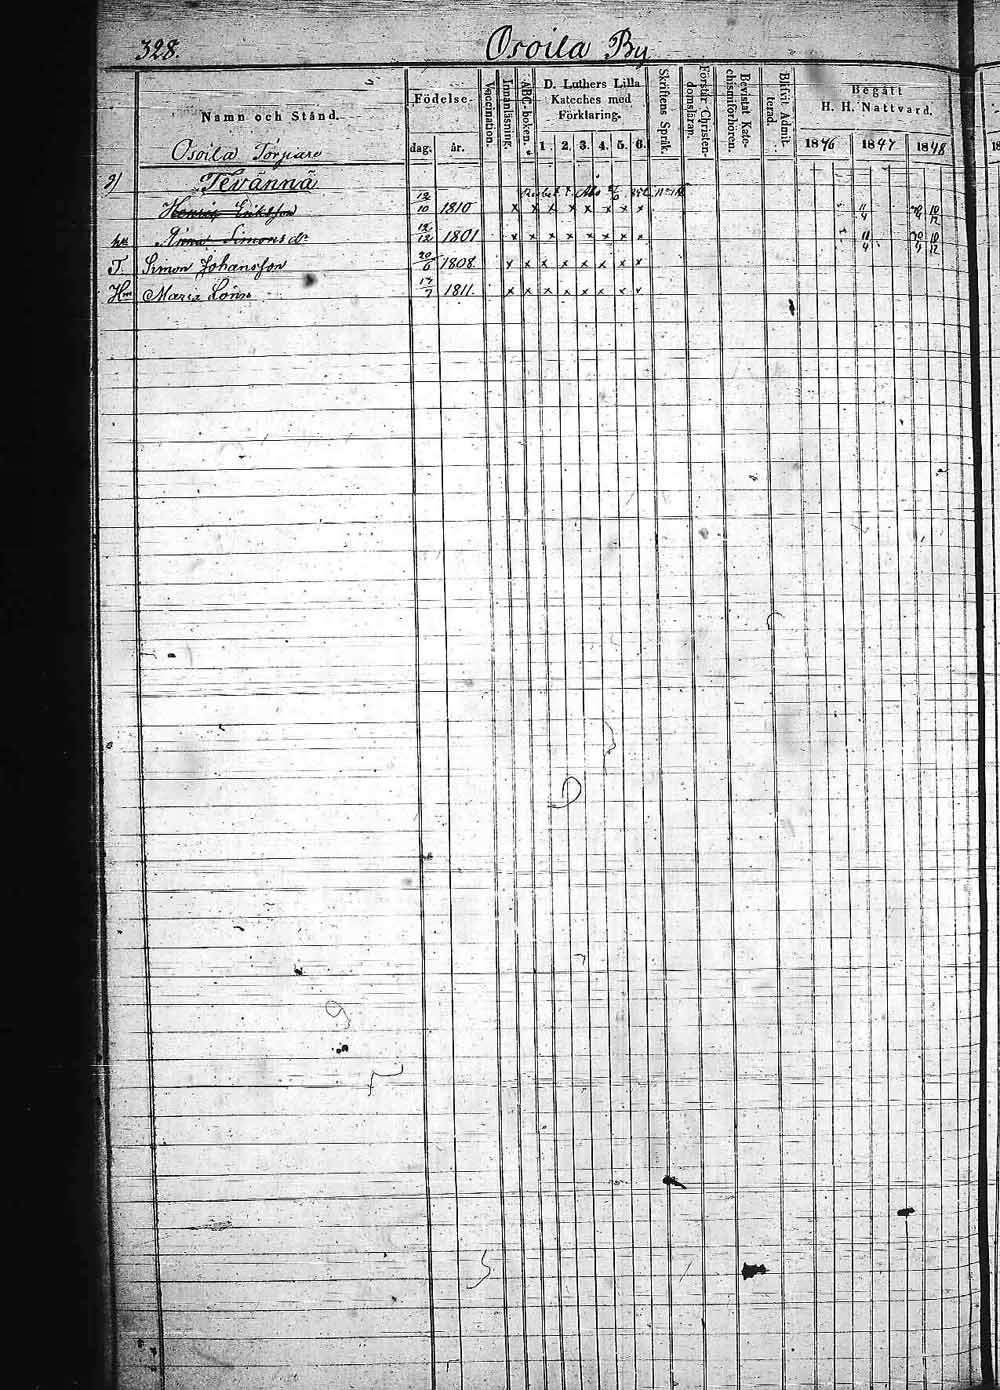 328.
Osoila By
Namn och Stånd.
Födelse-
dag. år.
Vaccination.
Innanläsning.
ABC-boken.
D. Luthers Lilla
Kateches med
Förklaring.
1. 2. 3. 4. 5. 6.
Skriftens Språk.
Förstår Christen-
domsläran.
Bevistat Kate-
chismiförhören.
Blifvit Admit-
terad.
Begått
H. H. Nattvard.
1846 1847 1848 18
Osoila Torpare
3) Tevännä
Henric Eriksson 12/10 1810 x x x x x x x x 11/4 10/12
hu Anna Simonsdr 12/12 1801 x x x x x x x x 11/4 10/12
T. Simon Johansson 20/6 1808 x x x x x x x x
Hu Maria Lönn 17/7 1811. x x x x x x x x